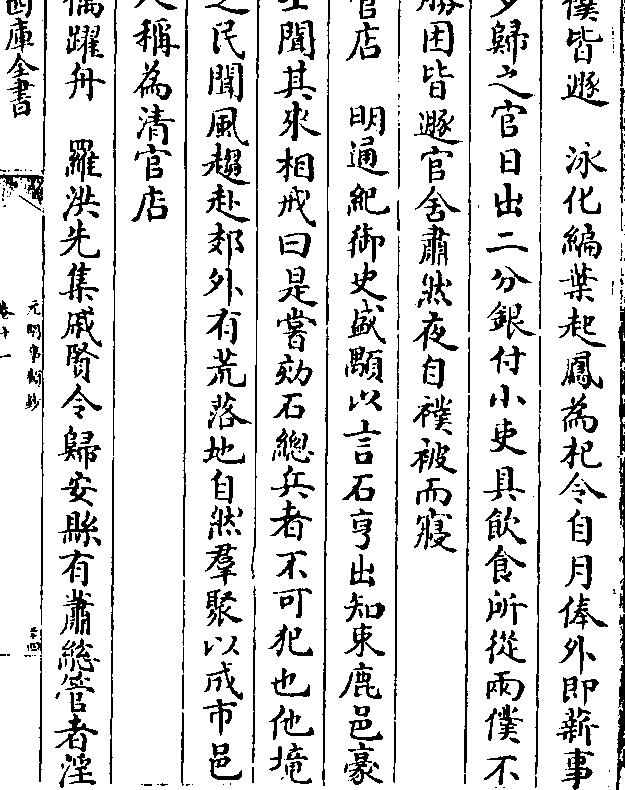 僕皆遯　泳化編葉起鳳為杞令自月俸外即薪事
歸之官日出二分銀付小吏具飲食所從兩僕不
勝困皆遯官舍肅然夜自襆被而寢
官店　明通紀御史盛顒以言石亨出知束鹿邑豪
聞其來相戒曰是嘗劾石總兵者不可犯也他境
之民聞風趨赴郊外有荒落地自然羣聚以成市邑
人稱為清官店
偶躍舟　羅洪先集戚賢令歸安縣有蕭總管者淫
元明事類鈔
卷十一
四庫全書